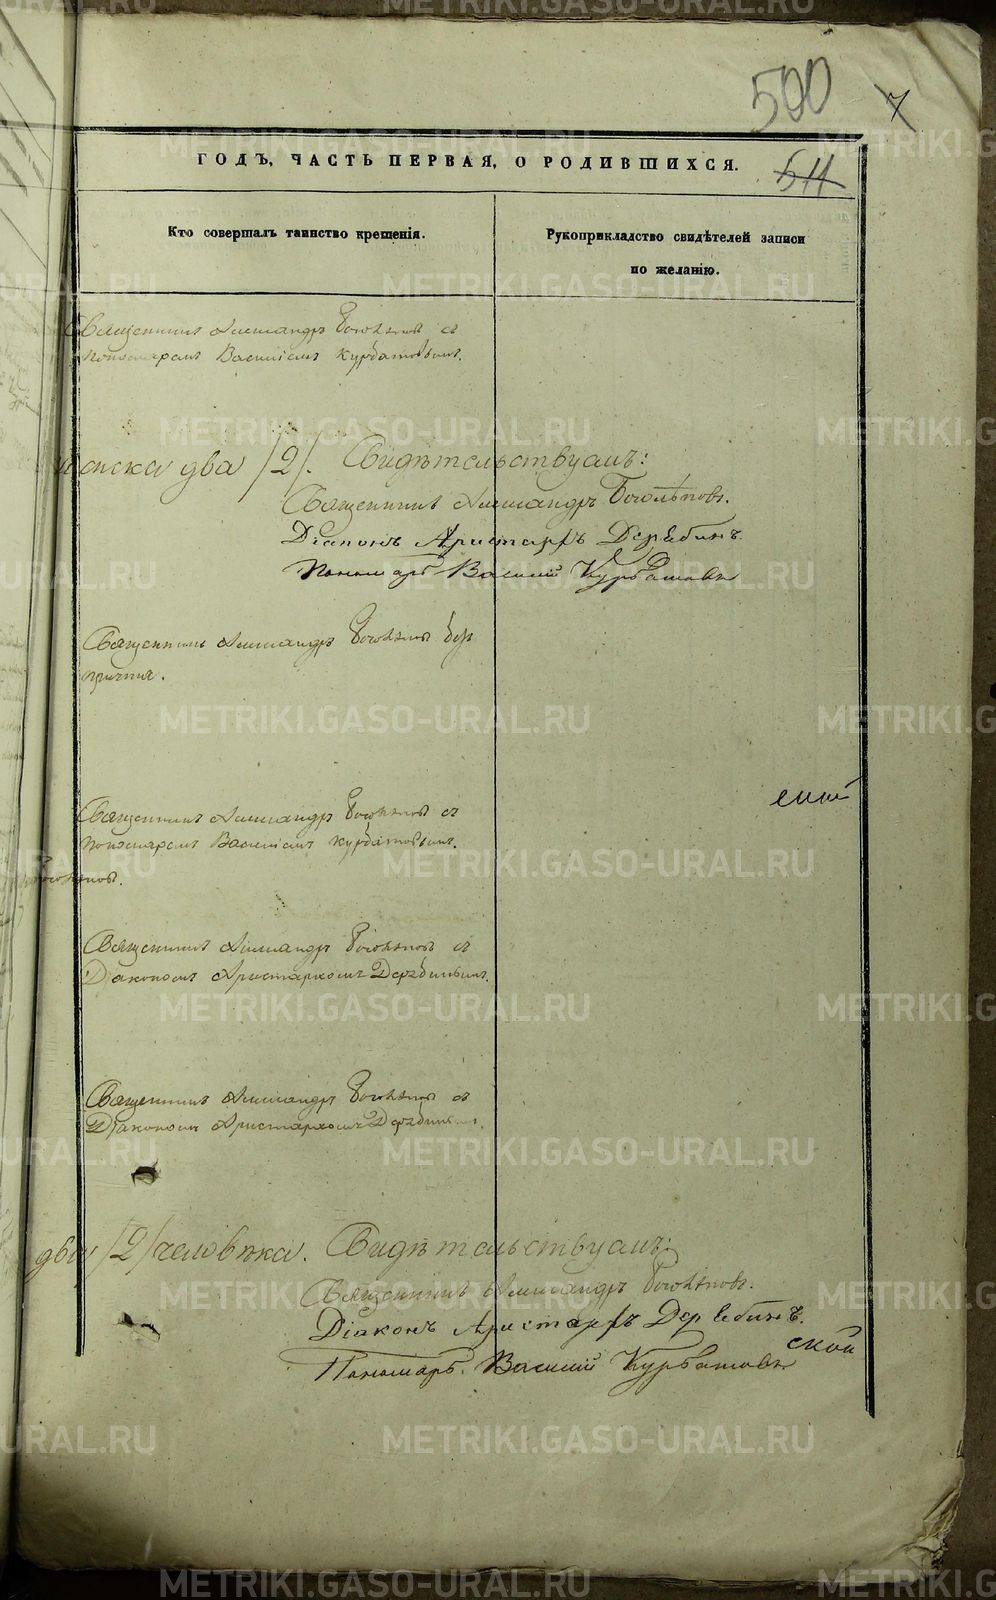 500
7
ГОДЪ, ЧАСТЬ ПЕРВАЯ, О РОДИВШИХСЯ.
511
Кто совершалъ таинство крещенія.
Рукоприкладство свидѣтелей записи
по желанію.
Священникъ Александръ Боголѣповъ съ
Пономаремъ Василіемъ Курбатовымъ.
два /2/. Свидѣтельствуемъ:
Священникъ Александръ Боголѣповъ.
Діаконъ Аристархъ Дерябинъ.
Пономарь Василій Курбатовъ
Священникъ Александръ Боголѣповъ безъ
причта.
ской
Священникъ Александръ Боголѣповъ съ
Пономаремъ Василіемъ Курбатовымъ.
Боголѣповъ.
Священникъ Александръ Боголѣповъ съ
Діакономъ Аристархомъ Дерябинымъ.
Священникъ Александръ Боголѣповъ съ
Діакономъ Аристархомъ Дерябинымъ.
два /2/ человѣка. Свидѣтельствуемъ:
Священникъ Александръ Боголѣповъ.
Діаконъ Аристархъ Дерябинъ.
ской
Пономарь Василій Курбатовъ
METRIKI.GASO-URAL.RU